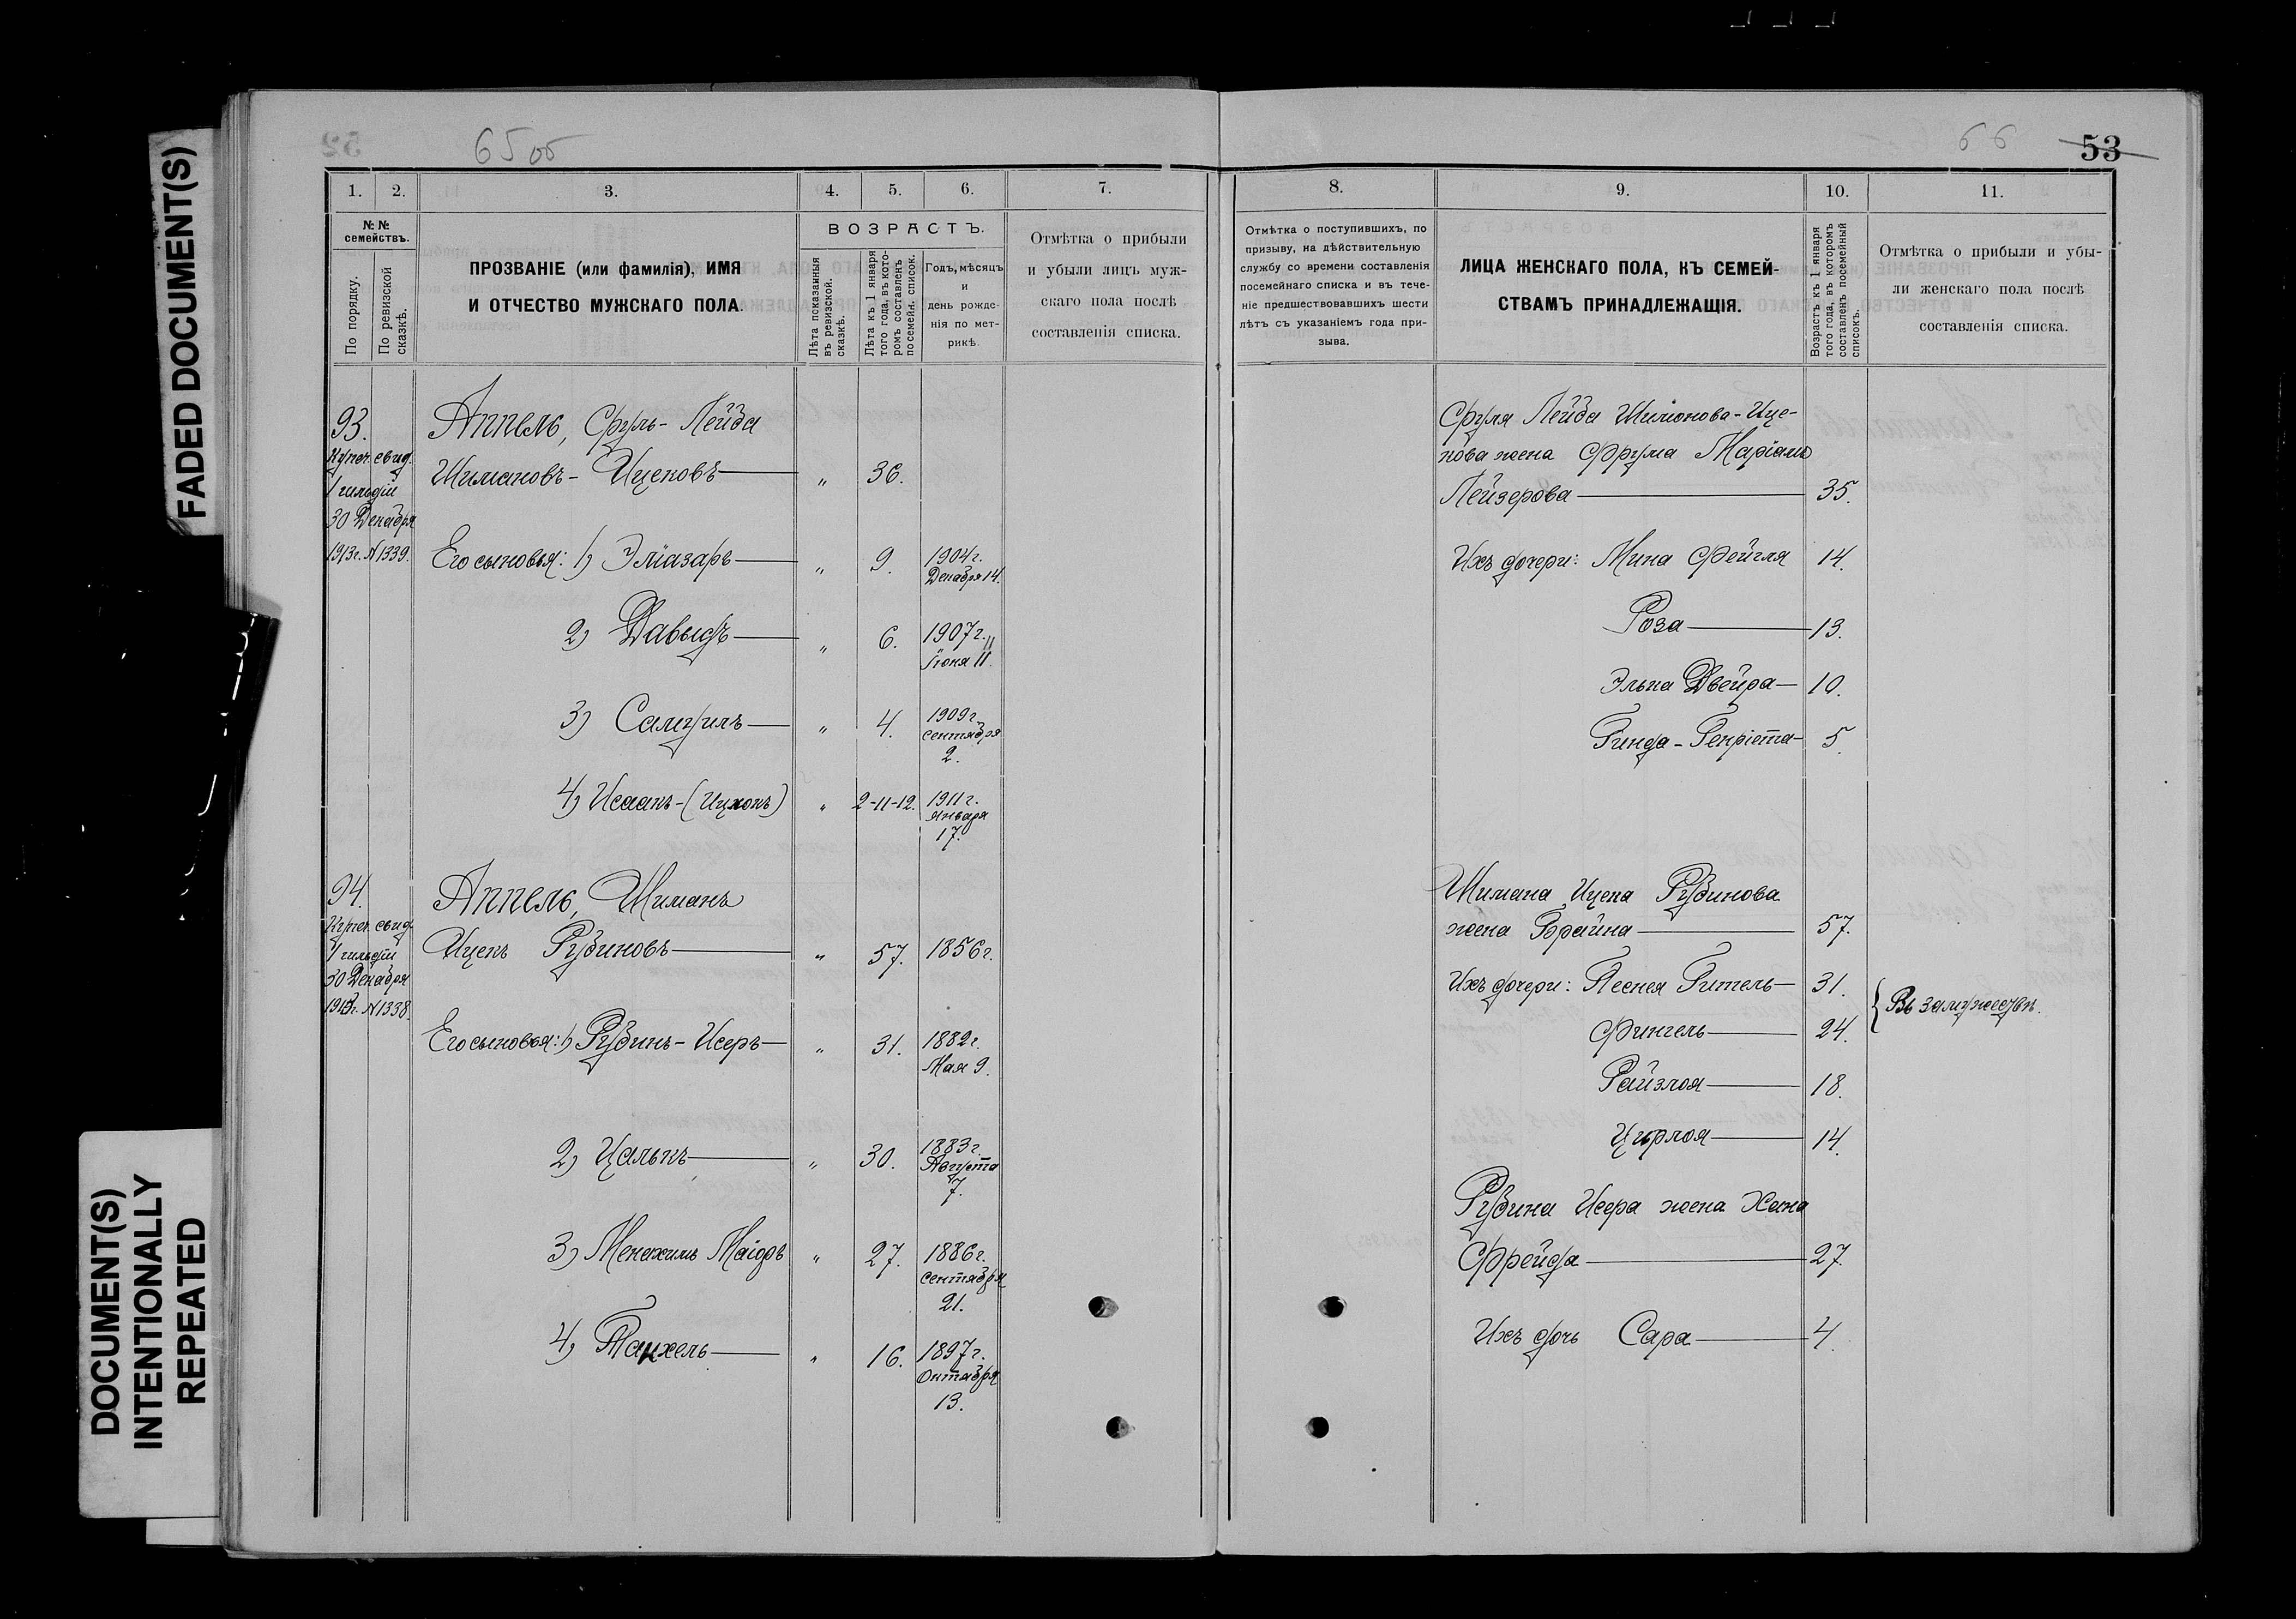 FADED DOCUMENT(S)
DOCUMENT(S)
INTENTIONALLY
REPEATED
65 об
1. 2. 3. 4. 5. 6. 7.
№ №
семействъ.
По порядку.
По ревизской
сказкѣ.
ПРОЗВАНІЕ (или фамилія), ИМЯ
И ОТЧЕСТВО МУЖСКАГО ПОЛА.
ВОЗРАСТЪ.
Лѣта показанныя
въ ревизской
сказкѣ.
Лѣта къ 1 января
того года, въ кото-
ромъ составленъ
посемейн. список.
Годъ, мѣсяцъ
и
день рожде-
нія по мет-
рикѣ.
Отмѣтка о прибыли
и убыли лицъ муж-
скаго пола послѣ
составленія списка.
93.
Купеч. свид.
1 гильдіи
30 Декабря
1913г. N 1339.
Аппель, Сруль-Лейба
Шимановъ-Ицековъ „ 36.
Его сыновья: 1) Эліазаръ „ 9. 1904г.
Декабря 14.
2) Давыдъ „ 6. 1907г.
Іюня 11.
3) Самуилъ „ 4. 1909г
Сентября
2.
4) Исаакъ-(Ицхокъ) „ 2-11-12. 1911г.
Января
17.
94.
Купеч. свид.
1 гильдіи
30 Декабря
1913г. N 1338.
Аппель, Шиманъ
Ицекъ Рубиновъ „ 57. 1856г.
Его сыновья: 1) Рубинъ-Исеръ „ 31. 1882г.
Мая 9.
2) Цалькъ „ 30. 1883г.
Августа
7.
3) Менахимъ Маіоръ „ 27. 1886г.
Сентября
21.
4) Танхель „ 16. 1897г.
Октября
13.
66
53
8. 9. 10. 11.
Отмѣтка о поступившихъ, по
призыву, на дѣйствительную
службу со времени составленія
посемейнаго списка и въ тече-
ніе предшествовавшихъ шести
лѣтъ съ указаніемъ года при-
зыва.
ЛИЦА ЖЕНСКАГО ПОЛА, КЪ СЕМЕЙ-
СТВАМЪ ПРИНАДЛЕЖАЩІЯ.
Возрастъ къ 1 января
того года, въ которомъ
составленъ посемейный
списокъ.
Отмѣтка о прибыли и убы-
ли женскаго пола послѣ
составленія списка.
Сруля Лейба Шимонова-Ице-
кова жена Фрума Маріамъ
Лейзерова 35.
Ихъ дочери: Мина Фейгля 14.
Роза 13.
Элька Двейра 10.
Гинда-Генріета 5.
Шимана Ицека Рубинова
жена Брайна 57.
Ихъ дочери: Песнея Гитель 31.
Фингель 24.
Въ замужествѣ.
Райзлоя 18.
Цирлоя 14.
Рубина Исера жена Хана
Фрейда 27.
Ихъ дочь Сара 4.